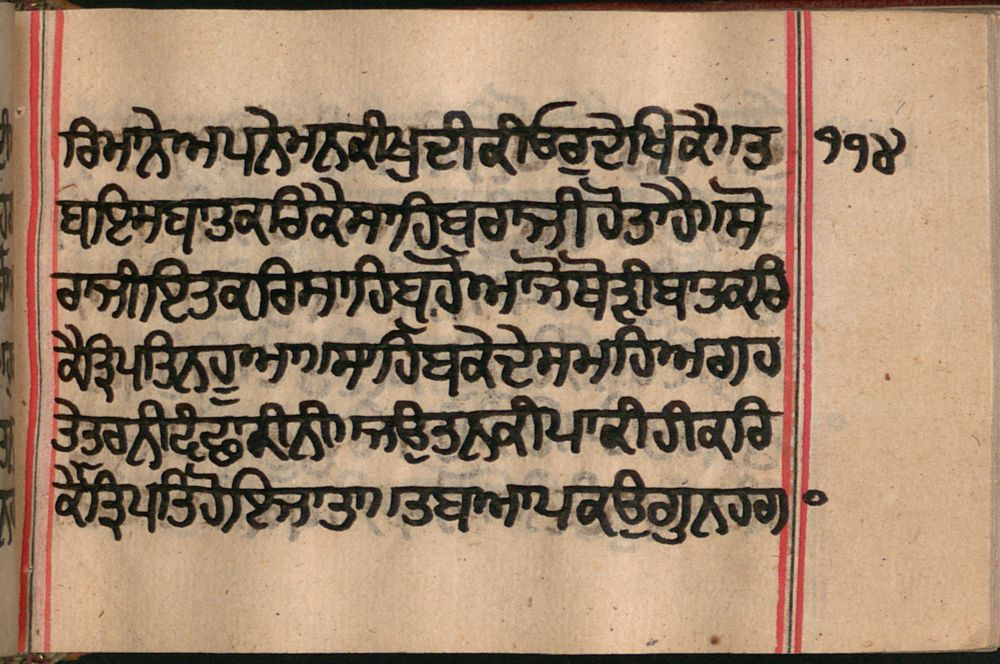 ਰਿਮਾਨੇਅਪਨੇਮਨਕੀਖੁਦੀਕੀਓਰੁਦੇਖਿਕੈ॥ਤ ੧੧੪
ਬਇਸਬਾਤਕਰਿਕੈਸਾਹਿਬੁਰਾਜੀਹੋਤਾਹੈ॥ਸੋ
ਰਾਜੀਇਤਕਰਿਸਾਹਿਬੁਹੋਆਜੋਥੋੜੀਬਾਤਕਰਿ
ਕੈਤ੍ਰਿਪਤਿਨਹੂਆ॥ਸਾਹਿਬਕੇਦੇਸਮਹਿਅਗਹ
ਤੇਤਰਨੀਢੂੰਢਾਕੀਨੀ॥ਜਉਤਨਕੀਪਾਕੀਹੀਕਰਿ
ਕੈਤ੍ਰਿਪਤਿਹੋਇਜਾਤਾ॥ਤਬਆਪਕਉਗੁਨਹਗ ੦